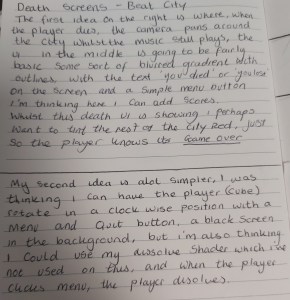 Death Screens - Beat City
The first idea on the right is where, when
the player dies, the camera pans around
the city whilst the music still plays, the
UI in the middle is going to be fairly
basic some sort of blurred gradient with
outlines with the text "you died" or you lose"
on the screen and a simple menu button
i'm thinking here I can add scores.
Whilst this death UI is showing i perhaps
want to tint the rest of the city Red, just
so the player knows its game over
My second idea is alot simpler, I was
thinking I can have the player (cube)
rotate in a clock wise position with a
menu and Quit button, a black screen
in the background, but i'm also thinking
I could use my dissolve shader which i've
not used on this, and when the player
clicks menu, the player disolves.